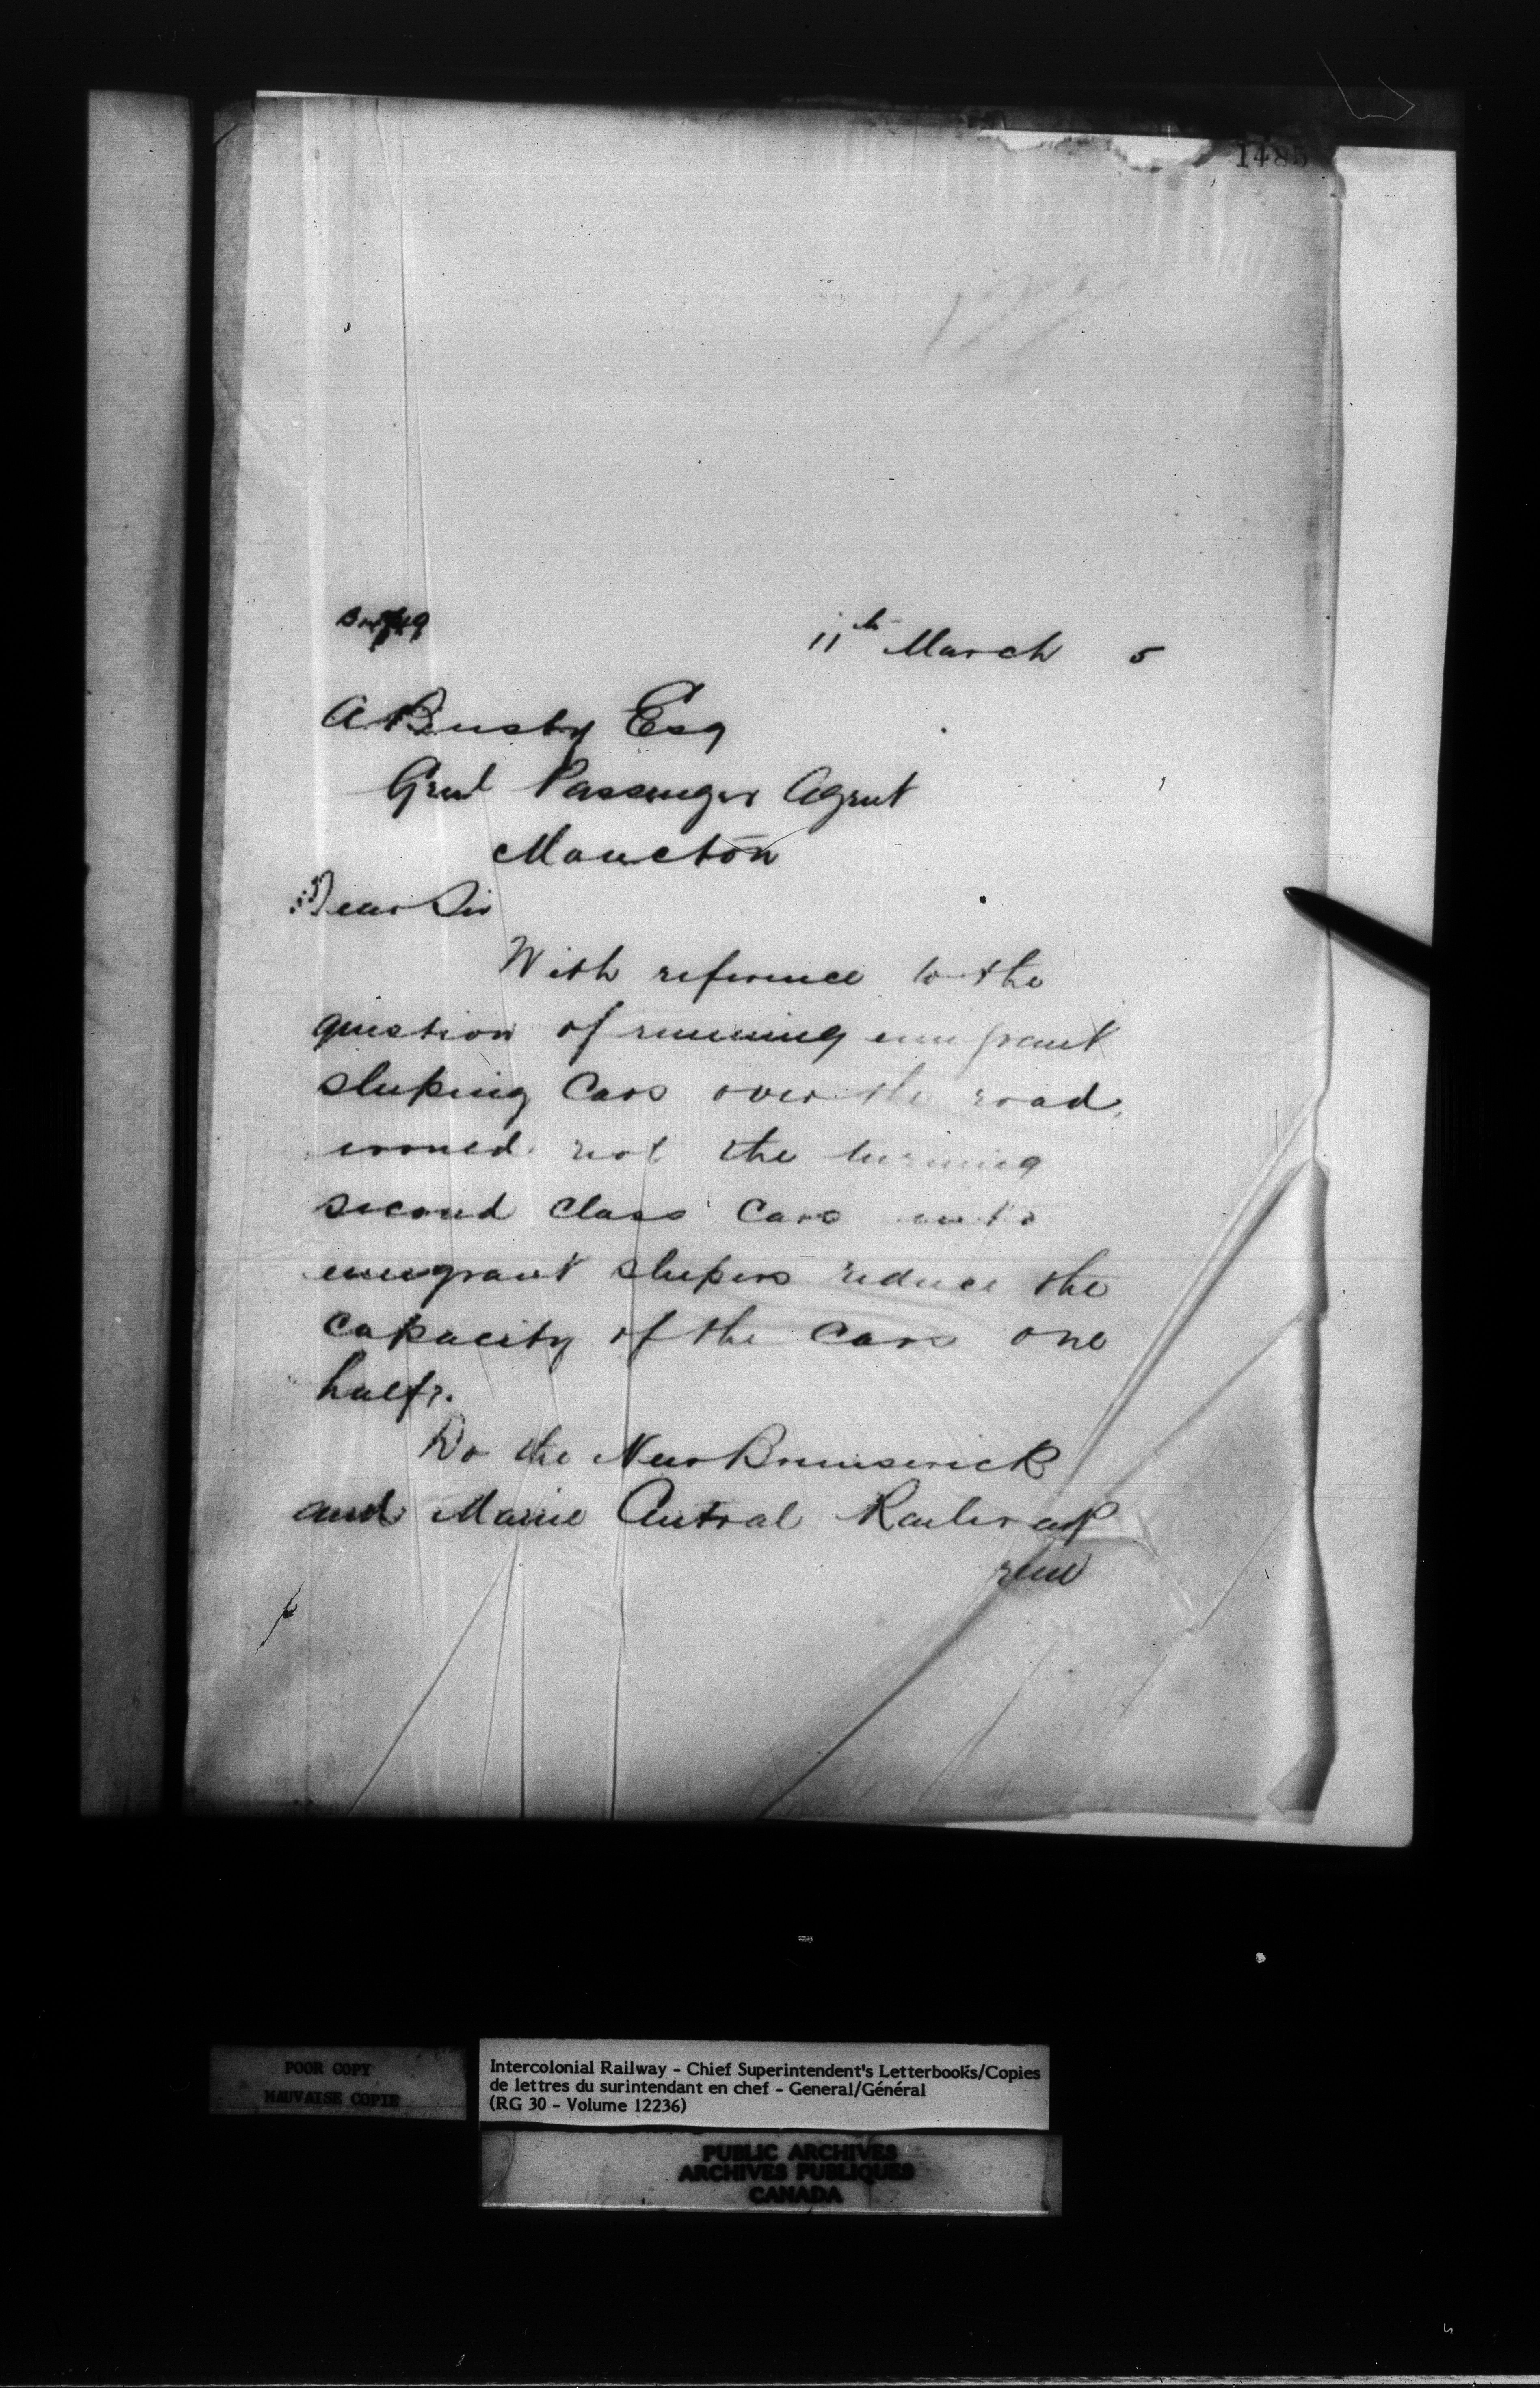 1485
11th March 5
A Busby Esq
Genl Passenger Agent
Moncton
Dear Sir
With reference to the
question of running emigrant
sleeping Cars over the road,
would not the turning
second class Cars into
emigrant sleepers reduce the
capacity of the Cars one
half?.
Do the New Brunswick
and Maine Central Railway
run
POOR COPY
MAUVAISE COPIE
Intercolonial Railway - Chief Superintendent's Letterbooks/Copies
de lettres du surintendant en chef - General/Général
(RG 30 - Volume 12236)
PUBLIC ARCHIVES
ARCHIVES PUBLIQUES
CANADA